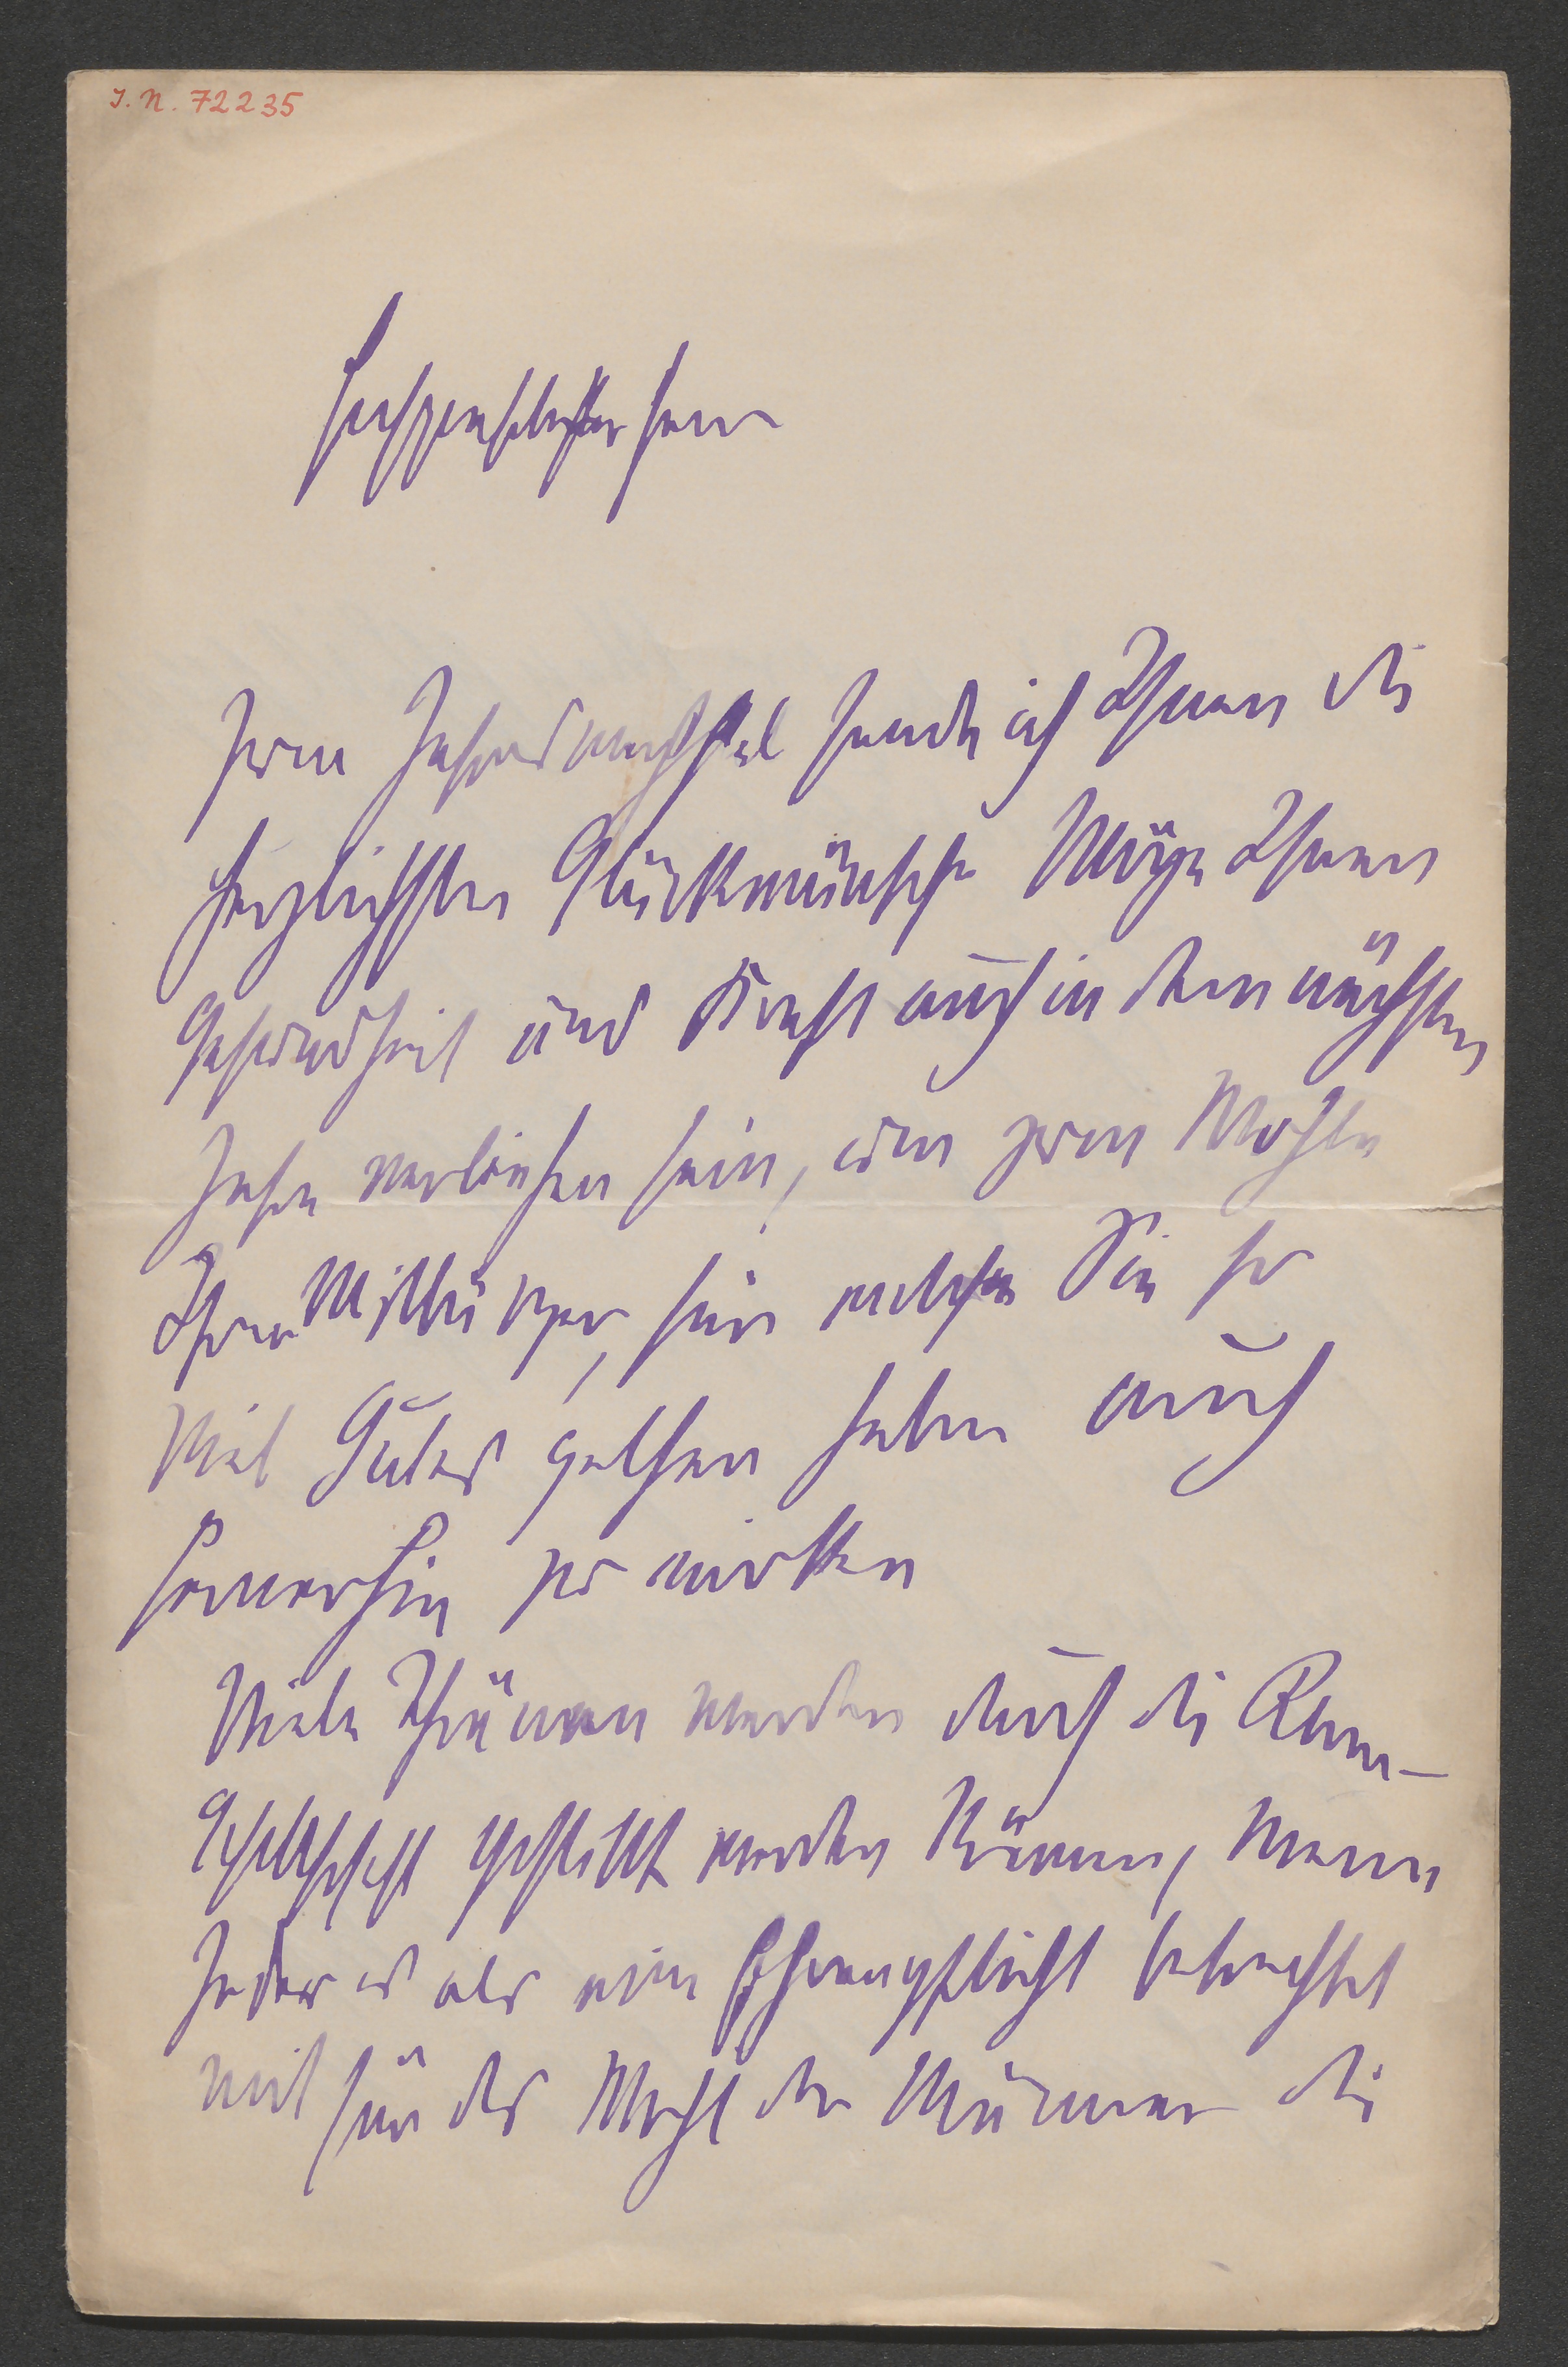 I. N. 72235
Hochgeehrter Herr
Zum Jahreswechsel sende ich Ihnen die
herzlichsten Glückwünsche Möge Ihnen
Gesundheit und Kraft auch in dem nächsten
Jahre verliehen sein, um zum Wohle
Ihrer Mitbürger, für welche Sie so
Viel Gutes gethan haben auch
fernerhin zu wirken
Viele Thränen werden durch die
Gesellschaft gestillt werden können, wenn
Jeder es als eine Ehrenpflicht betrachtet
mit für das Wohl der Männer die